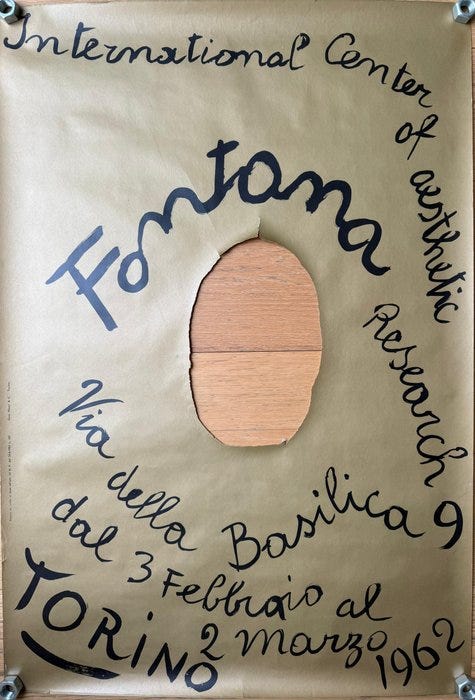 International Center
of aesthetic
Research
Fontana
Via della Basilica 9
dal 3 Febbraio al
2 marzo 1962
TORiNO